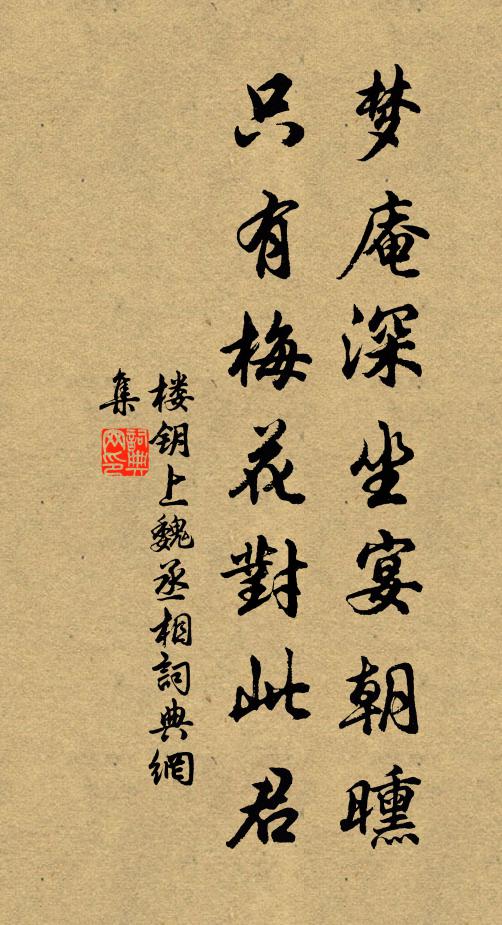 梦庵深坐宴朝曛
只有梅花對此君
楼钥上魏丞相詞典網
集
詞典網印